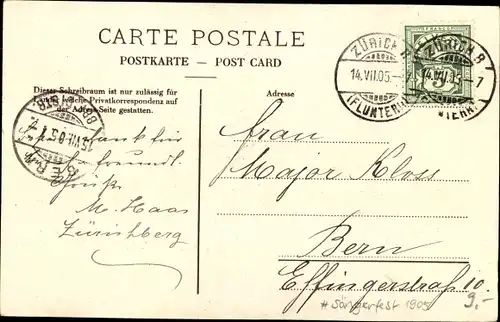 CARTE POSTALE
POSTKARTE — POST CARD
Dieser Schreibraum ist nur zulässig für
welche Privatkorrespondenz auf
der Adress-Seite gestatten.
Adresse
ZÜRICH
14.VII.05.
(FLUNTERN)
ZÜRICH 8
14.VII.05 – 7
5
BERN
VII.05
Dank für
freundl.
Grüsse
M. Haas
Zürichberg
Frau
Major Kloss
Bern
Effingerstraße 10.
# Sängerfest 1905
9.-